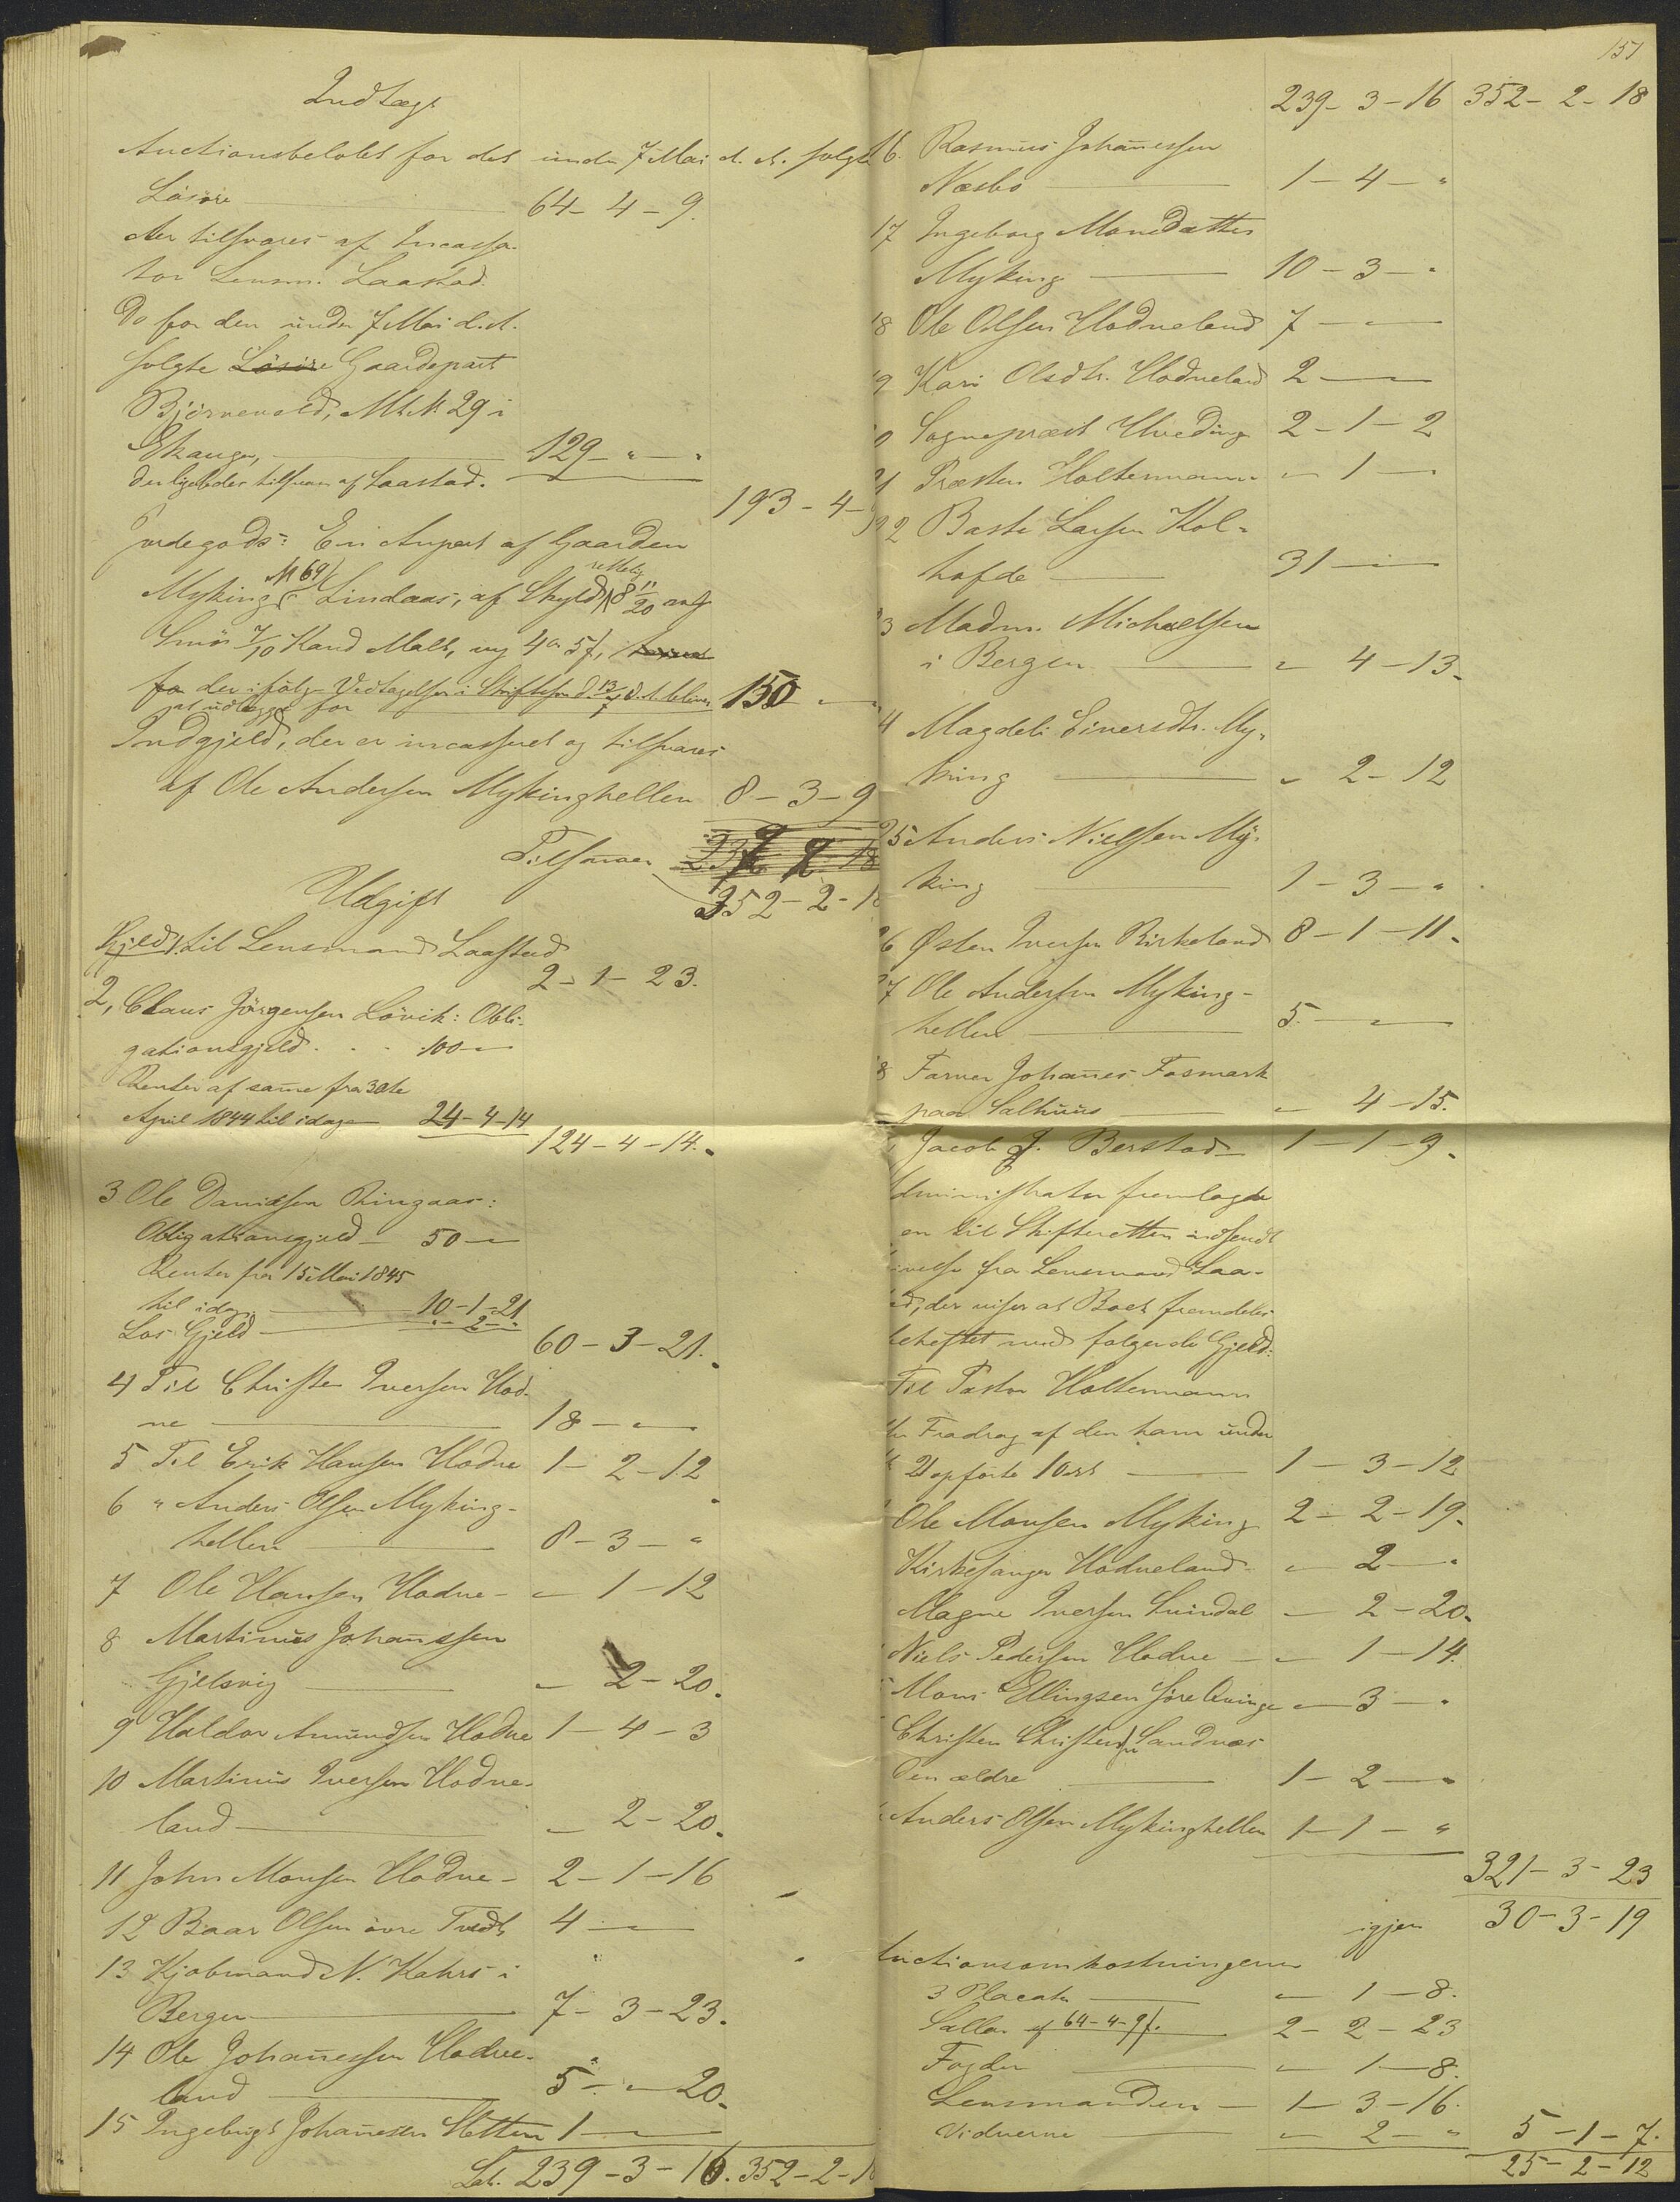 Indtægt
Auctionsbeløbet for det under 7 Mai d. A. solgte
Løsøre 64 - 4 - 9.
der tilsvares af Incassa-
tor Lensm. Laastad.
Do for den under 7 Mai d. A.
solgte Løsøre Gaardepart
Bjørnevold, M. N. 29 i
Ekanger, 129 - " - "
der ligeledes tilsvares af Laastad.
193 - 4 - 9
Jordegods: En Anpart af Gaarden
Myking M 69 Lindaas, af Skyld 8 11/20 mrk
Smør 7/10 Kand Malt, ny 4 o 5 f,
for der ifølge Vedtagelse i Skiftesam. d. 13/7 d. A. bliver
at udlægge for 150 - "
Indgjeld, der er incasseret og tilsvares
af Ole Andersen Mykinghellen 8 - 3 - 9
Tilsammen
352 - 2 - 18
Udgift
Gjeld 1. til Lensmand Laastad
2 - 1 - 23.
2, Claus Jørgensen Løvik: Obli-
gationsgjeld . . . 100 - "
Renter af same fra 30te
April 1844 til idag 24 - 4 - 14
124 - 4 - 14.
3 Ole Danielsen Ringaas:
Obligationsgjeld - 50 - "
Renter fra 15 Mai 1845
til idag 10 - 1 - 21
Løs Gjeld " - 2 - "
60 - 3 - 21.
4 Til Christen Iversen Hod-
ne 18 - "
5 Til Erik Hansen Hodne 1 - 2 - 12
6 " Anders Olsen Myking-
hellen 8 - 3 - "
7 Ole Hansen Hodne - " - 1 - 12
8 Martinus Johanessen
Gjelsvig " - 2 - 20.
9 Haldor Amundsen Hodne 1 - 4 - 3
10 Martinus Iversen Hodne-
land " - 2 - 20.
11 John Monsen Hodne - 2 - 1 - 16
12 Baar Olsen øvre Tvedt 4 - "
13 Kjøbmand N. Kahrs i
Bergen 7 - 3 - 23.
14 Ole Johannessen Hodne-
land 5 - " - 20.
15 Ingebrigt Johannessen Sletten 1 - "
Lat. 239 - 3 - 16. 352 - 2 - 18
151
239 - 3 - 16 352 - 2 - 18
16. Rasmus Johannessen
Næsbø 1 - 4 - "
17 Ingeborg Monsdatter
Myking 10 - 3 - "
18 Ole Olsen Hodneland 7 - "
19 Kari Olsdtr. Hodneland 2 - "
20 Sognepræst Hveding 2 - 1 - 2
21 Præsten Holtermann " - 1 - "
22 Baste Larsen Kol-
hofde 31 - "
23 Madm. Michaelsen
i Bergen " - 4 - 13.
24 Magdeli Einersdtr. My-
king " - 2 - 12
25 Anders Nielsen My-
king 1 - 3 - "
26 Østen Iversen Birkeland 8 - 1 - 11.
27 Ole Andersen Myking-
hellen 5. - "
28 Farver Johannes Fosmark
paa Salhuus " - 4 - 15.
Jacob J. Berstad 1 - 1 - 9.
Administrator fremlagde
en til Skifteretten indsendt
ivelse fra Lensmand Laa-
ad, der viser at Boet fremdeles
beheftet med følgende Gjeld:
Til Pastor Holtermann
ter Fradrag af den ham under
N. 21 opførte 1 Ort 1 - 3 - 12
Ole Monsen Myking 2 - 2 - 19.
Kirkesanger Hodneland " - 2 - "
Magne Iversen Svindal - 2 - 20.
Niels Pedersen Hodne - " - 1 - 14.
Mons Ellingsen Søre Qvinge " - 3 - "
Christen Christensen Sandnæs
den ældre 1 - 2 - "
Anders Olsen Mykinghellen 1 - 1 - "
321 - 3 - 23
igjen 30 - 3 - 19
Auctionsomkostningerne
3 Placater " - 1 - 8.
Sallar. af 64 - 4 - 9 f. 2 - 2 - 23
Fogden " - 1 - 8.
Lensmanden - 1 - 3 - 16.
Vidnerne " - 2 - " 5 - 1 - 7.
25 - 2 - 12